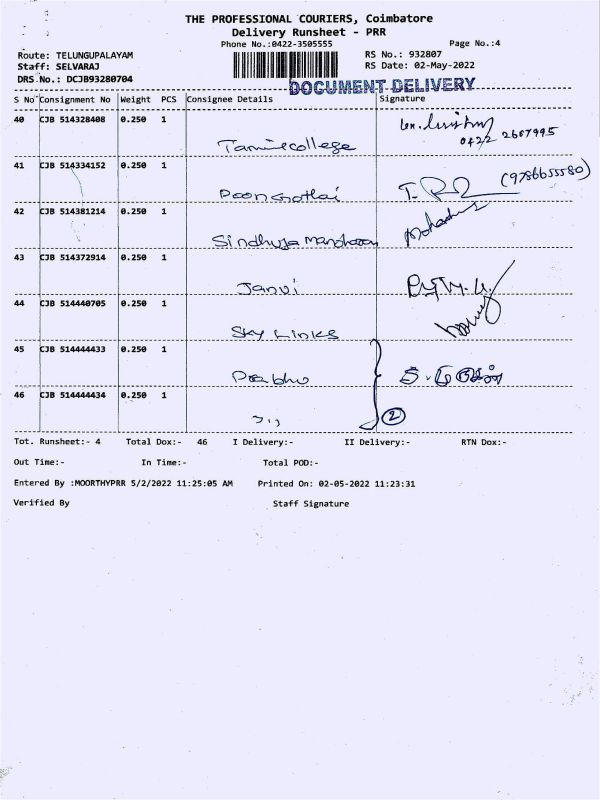 THE PROFESSIONAL COURIERS, Coimbatore
Delivery Runsheet - PRR
Phone No.:0422-3505555 Page No.:4
Route: TELUNGUPALAYAM RS No.: 932807
Staff: SELVARAJ RS Date: 02-May-2022
DRS No.: DCJB93280704
DOCUMENT DELIVERY
S No Consignment No Weight PCS Consignee Details Signature
40 CJB 514328408 0.250 1
Tamil college 0422 2607995
41 CJB 514334152 0.250 1
Poongothai (9786655580)
42 CJB 514381214 0.250 1
Sindhuja Manoharan
43 CJB 514372914 0.250 1
Janvi
44 CJB 514440705 0.250 1
Sky Links
45 CJB 514444433 0.250 1
Prabhu
46 CJB 514444434 0.250 1
,, 2
Tot. Runsheet:- 4 Total Dox:- 46 I Delivery:- II Delivery:- RTN Dox:-
Out Time:- In Time:- Total POD:-
Entered By :MOORTHYPRR 5/2/2022 11:25:05 AM Printed On: 02-05-2022 11:23:31
Verified By Staff Signature